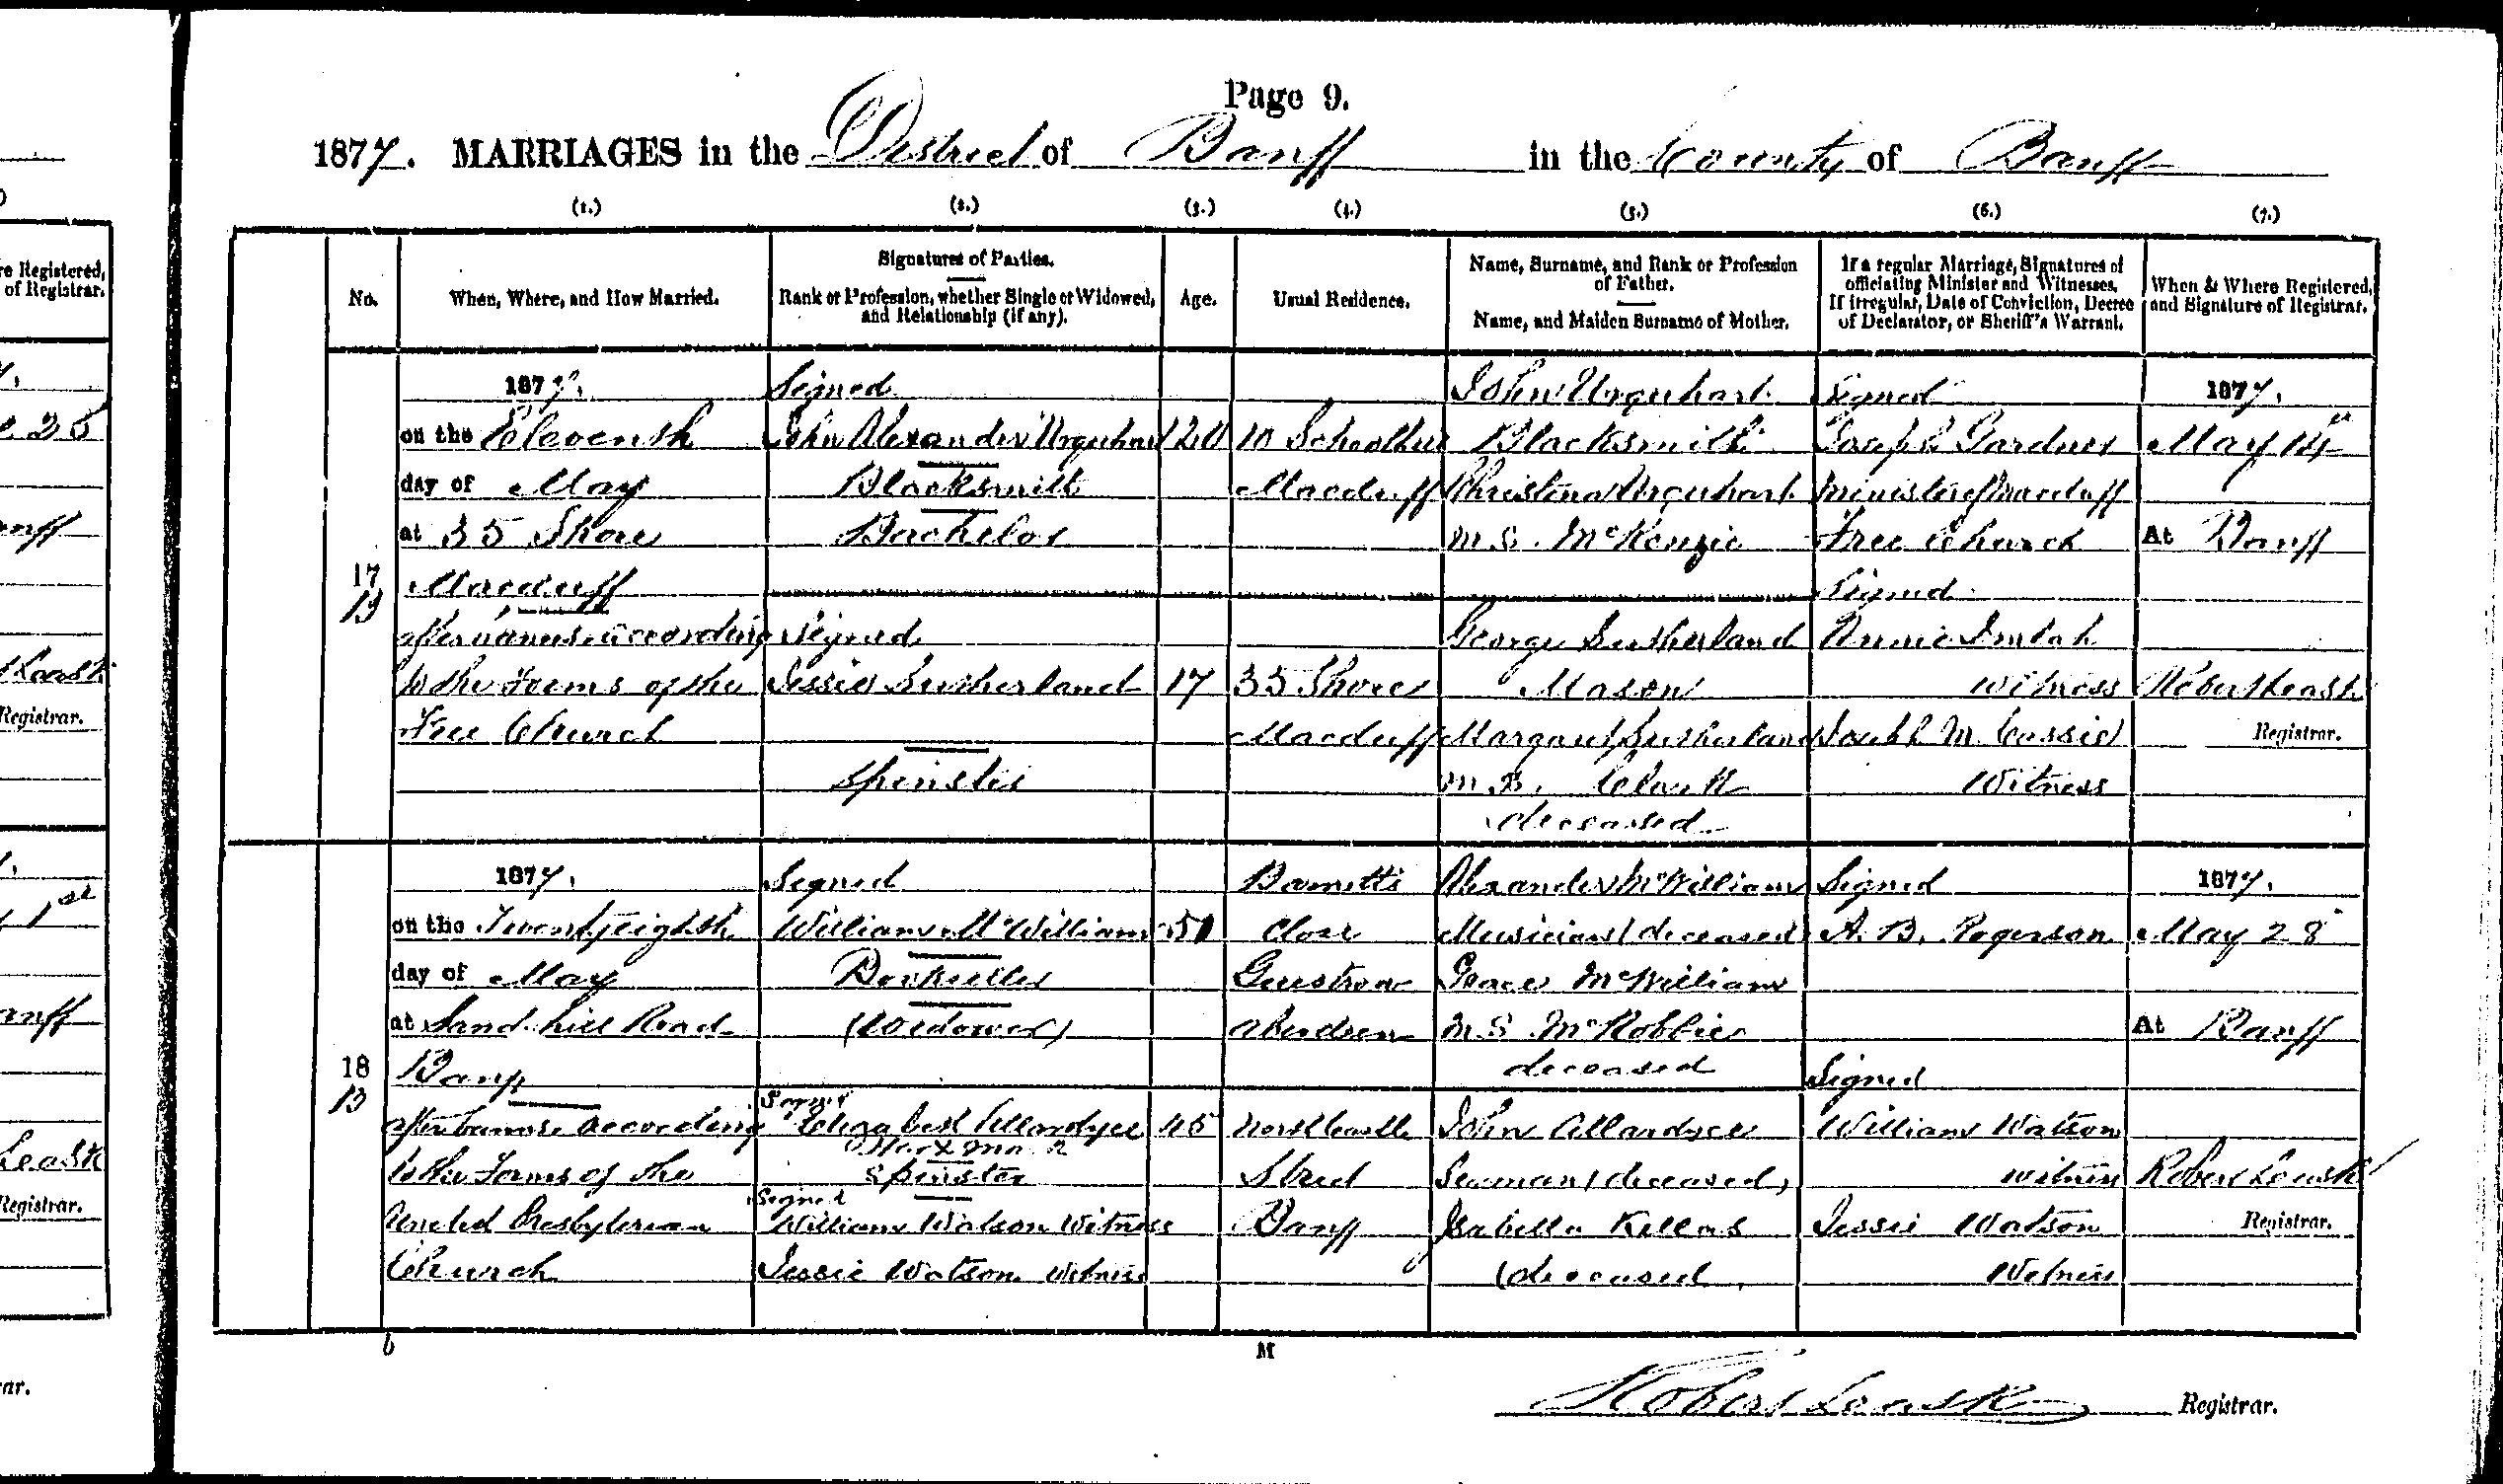 Page 9.
1877. MARRIAGES in the District of Banff in the County of Banff
(1.) (2.) (3.) (4.) (5.) (6.) (7.)
No.
When, Where, and How Married.
Signatures of Parties.
Rank or Profession, whether Single or Widowed,
and Relationship (if any).
Age.
Usual Residence.
Name, Surname, and Rank or Profession
of Father.
Name, and Maiden Surname of Mother.
If a regular Marriage, Signatures of
officiating Minister and Witnesses.
If irregular, Date of Conviction, Decree
of Declarator, or Sheriff's Warrant.
When & Where Registered,
and Signature of Registrar.
17
1877.
on the Eleventh
day of May
at 35 Shore
Macduff
after banns according
to the Forms of the
Free Church
Signed
John Alexander Urquhart
Blacksmith
Bachelor
Signed
Jessie Sutherland
Spinster
20
17
10 Schoolhill
Macduff
35 Shore
Macduff
John Urquhart
Blacksmith
Christina Urquhart
M.S. McKenzie
George Sutherland
Mason
Margaret Sutherland
M.S. Clark
deceased
Signed
Joseph Gardner
Minister of Macduff
Free Church
Signed
Annie Imlah
witness
Joseph M. Cassie
Witness
1877.
May 14
At Banff
Robert Leask
Registrar.
18
1877.
on the Twenty eighth
day of May
at Sand hill Road
Banff
after banns according
to the Forms of the
United Presbyterian
Church
Signed
William McWilliam
(Widower)
Signed
Elizabeth Allardyce
Her X mark
Spinster
Signed
William Watson Witness
Jessie Watson Witness
51
45
Close
Guestrow
Aberdeen
North Castle
Street
Banff
Alexander McWilliam
Musician (deceased)
Grace McWilliam
M.S. McRobbie
deceased
John Allardyce
Seaman (deceased)
Isabella Kellas
(deceased)
Signed
A. B. Rogerson
Signed
William Watson
witness
Jessie Watson
Witness
1877.
May 28
At Banff
Robert Leask
Registrar.
M
Robert Leask Registrar.
re Registered,
of Registrar.
25
anff
Leask
Registrar.
1st
anff
Leask
Registrar.
rar.